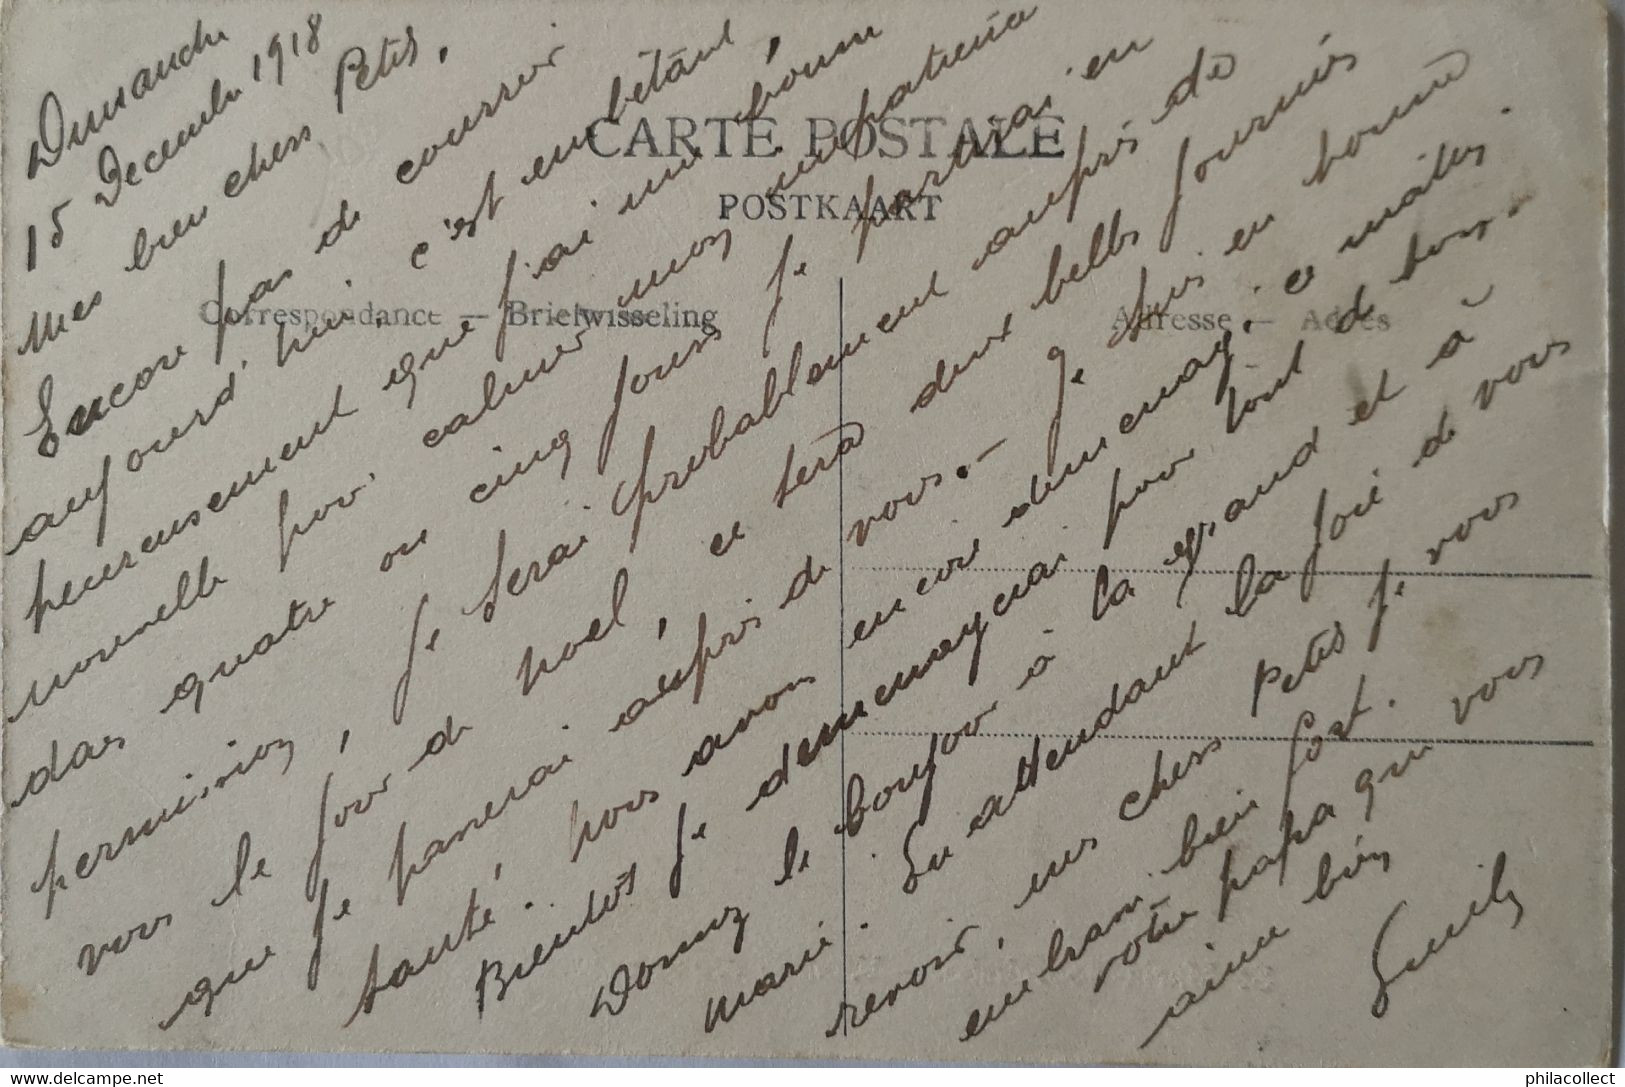 CARTE POSTALE
POSTKAART
Correspondance — Briefwisseling
Adresse — Adres
Dimanche
15 Decembre 1918
Mes bien chers Petits,
Encore pas de courrier
aujourd'hui. c'est embêtant,
heureusement que j'ai une bonne
nouvelle pour calmer mon impatience
dans quatre ou cinq jours je partirai en
permission, je serai probablement auprès de
vous le jour de noel, ce sera deux belles journées
que je passerai auprès de vous. — Je suis en bonne
santé. nous avons encore déménagé, ce matin.
Bientôt je déménagerai pour tout de bon. —
Donnez le bonjour à la grand et à
Marie. En attendant la joie de vous
revoir, mes chers Petits je vous
embrasse bien fort.
votre papa qui vous
aime bien
philacollect